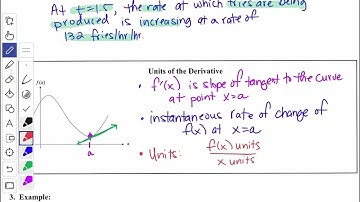 At t=1.5, the rate at which fries are being
produced is increasing at a rate of
132 fries/hr/hr.
Units of the Derivative
f(x)
• f'(x) is slope of tangent to the curve
at point x=a
• instantaneous rate of change of
f(x) at x=a
• Units: f(x) units
x units
a
3. Example: